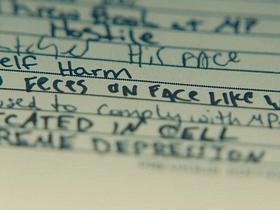 Threw Book at MP
Hostile
His face
self Harm
feces on face like
used to comply with MP
CATED IN CELL
REME DEPRESSION